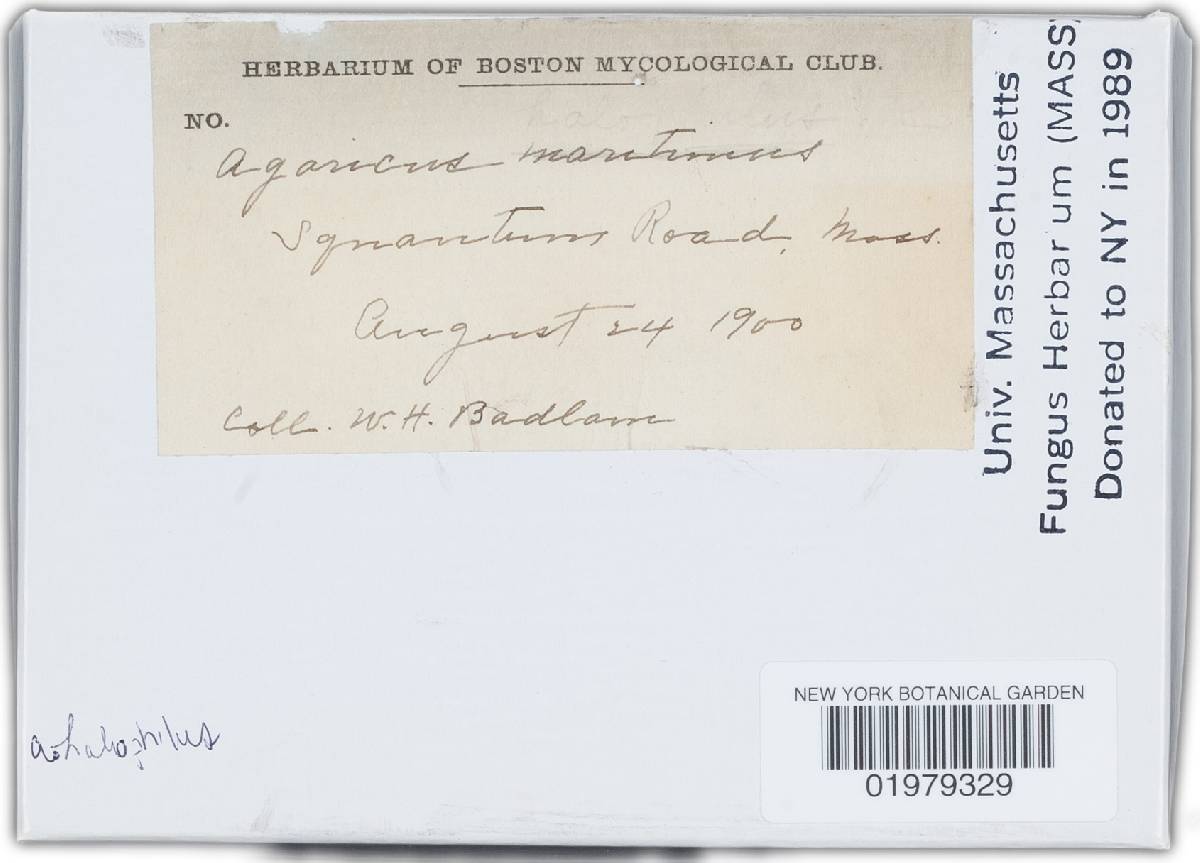 HERBARIUM OF BOSTON MYCOLOGICAL CLUB.
NO.
Agaricus maritimus
Squantum Road, Mass.
August 24 1900
Coll. W. H. Badlam
Univ. Massachusetts
Fungus Herbar um (MASS)
Donated to NY in 1989
NEW YORK BOTANICAL GARDEN
01979329
a. halophilus